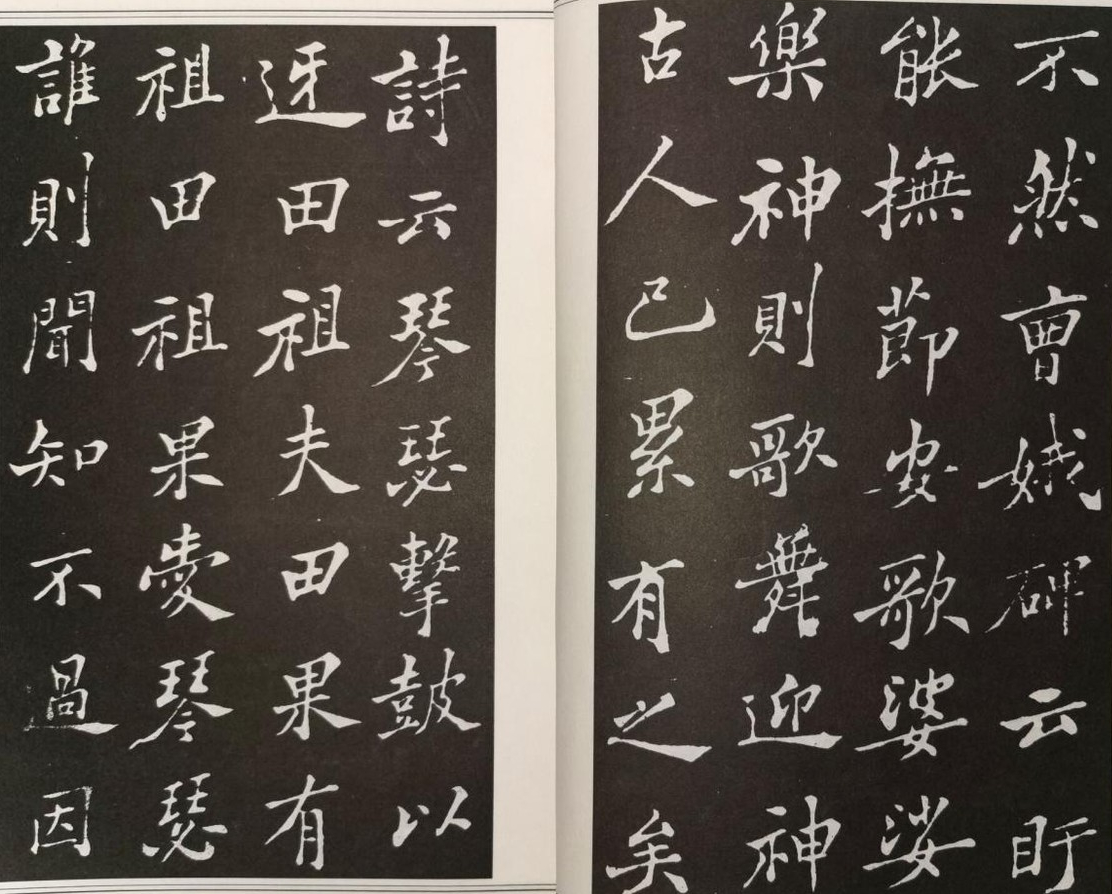 不然曹娥碑云盱
能撫節安歌婆娑
樂神則歌舞迎神
古人已累有之矣
詩云琴瑟擊鼓以
迓田祖夫田果有
祖田祖果愛琴瑟
誰則聞知不過因